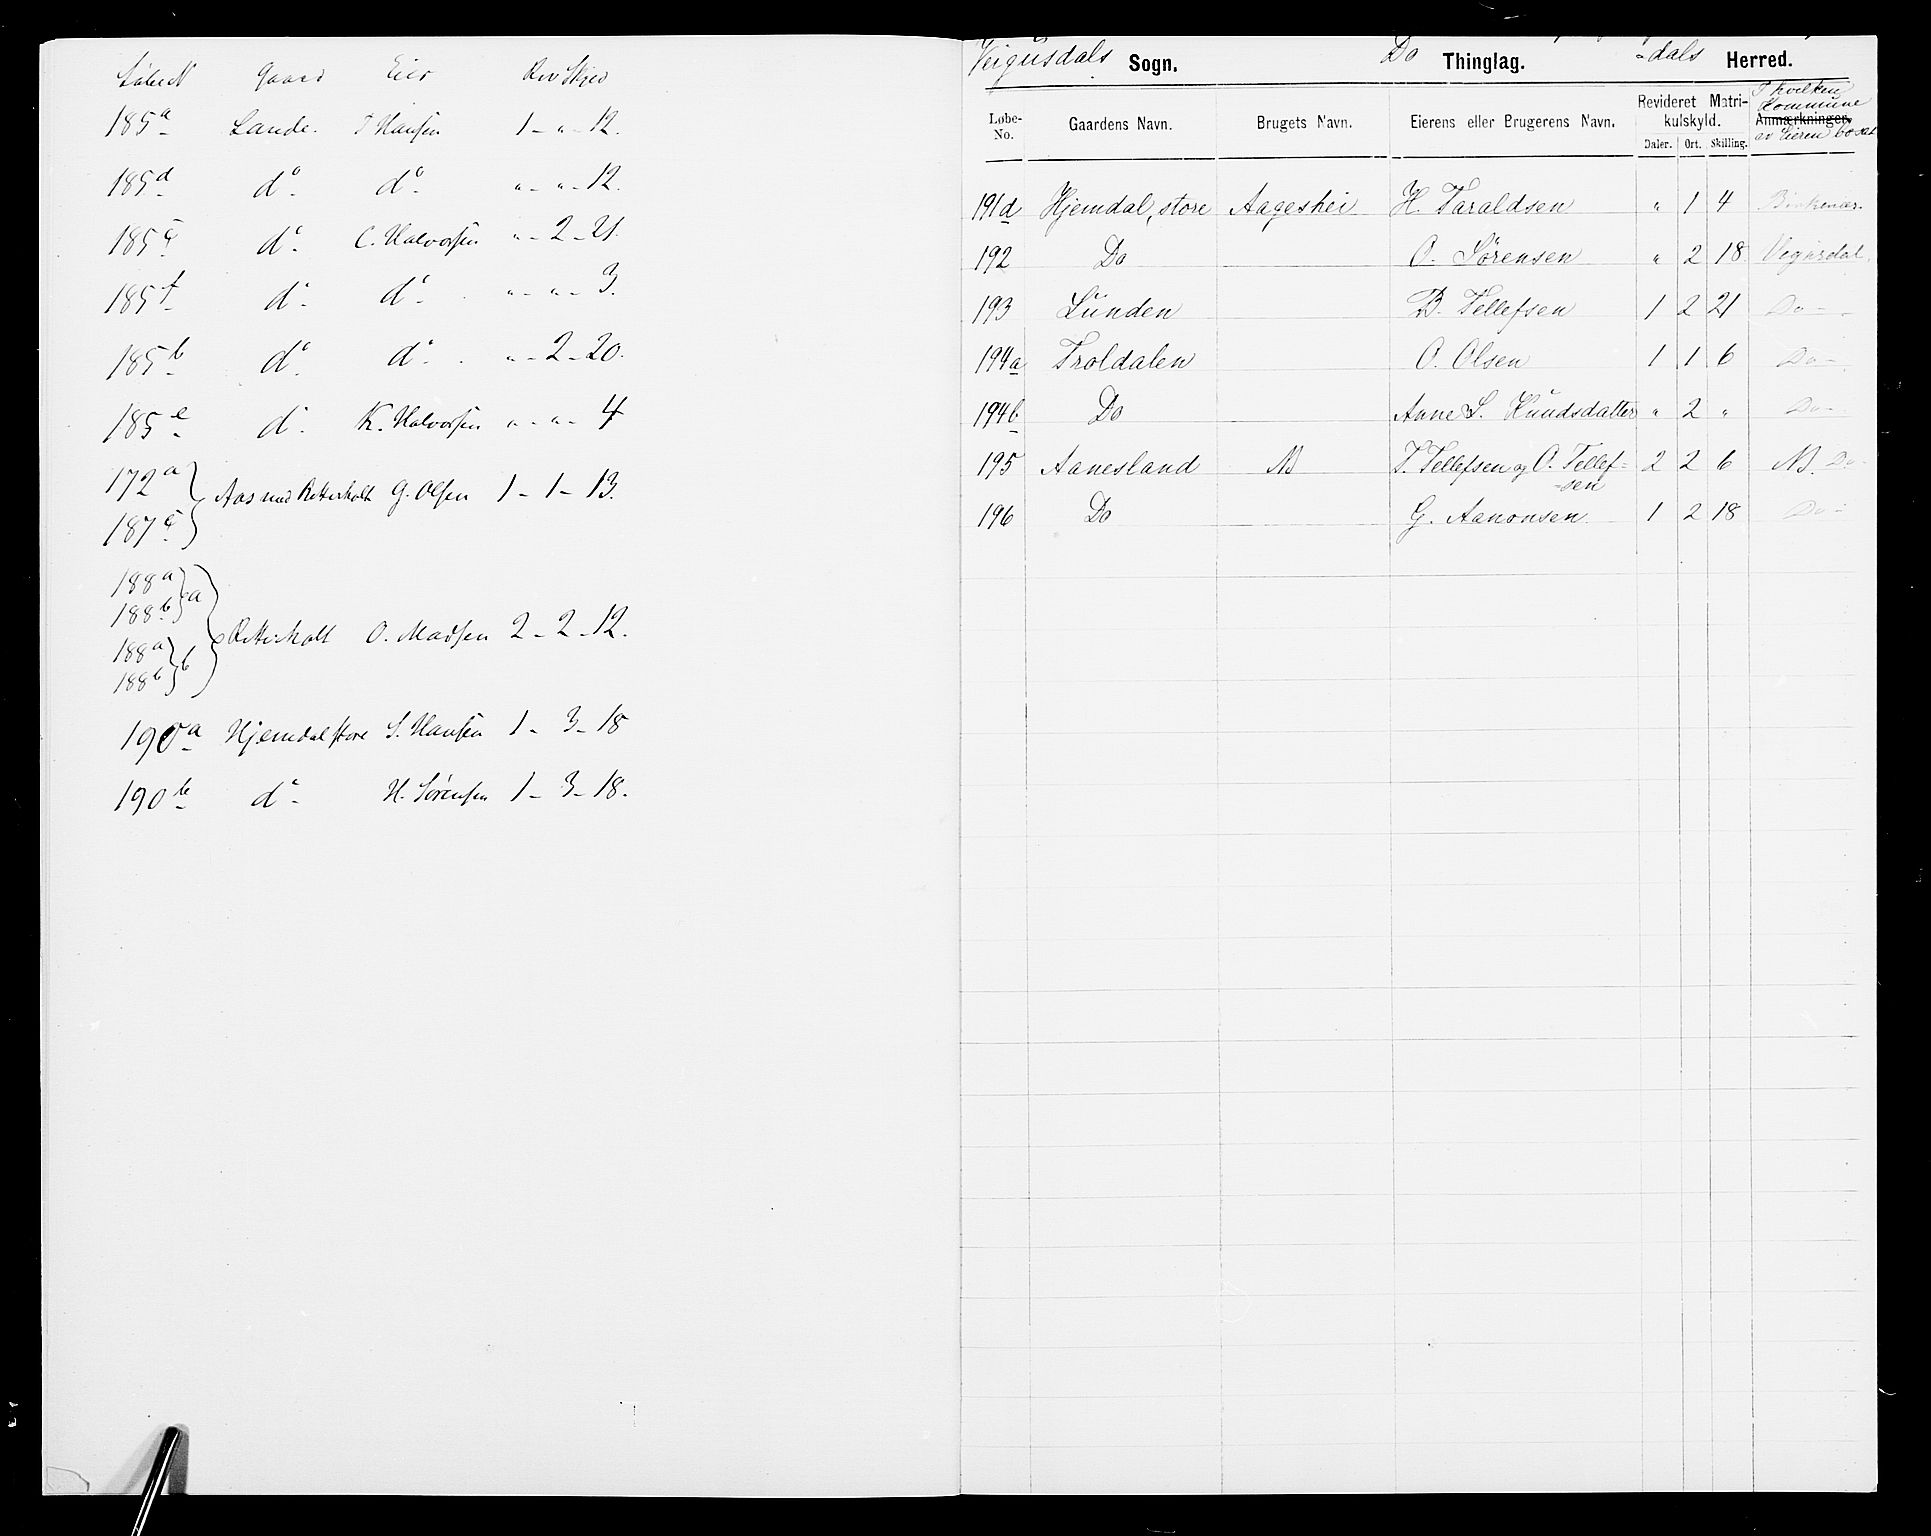 Løbe N Gaard Eier Rev Skyld
185a Lande. T Hansen 1 - " - 12.
185d do. do. " - " - 12.
185c do. C. Halvorsen " - 2 - 21.
185f do. do. " - " - 3.
185b do. do. " - 2 - 20.
185e do. K. Halvorsen " - " - 4
172a
187c Aas med Retterholt G. Olsen 1 - 1 - 13.
188a
188b a
Retterholt O. Madsen 2 - 2 - 12.
188a
188b b
190a Hjemdal store S. Hansen 1 - 3 - 18
190b do. H. Sørensen 1 - 3 - 18.
Veigusdals Sogn. Do Thinglag. -dals Herred.
Løbe-No. Gaardens Navn. Brugets Navn. Eierens eller Brugerens Navn. Revideret Matrikulskyld. Daler. Ort. Skilling. Anmærkninger.
I hvilken
Kommune
av Eieren bosat
191d Hjemdal, store Aageshei H. Taraldsen " 1 4 Birkenæs
192 Do O. Sørensen " 2 18 Vegusdal.
193 Lunden B. Tellefsen 1 2 21 Do -
194a Troldalen O. Olsen 1 1 6 Do -
194b Do Anne S. Knudsdatter " 2 " Do -
195 Aanesland NB T. Tellefsen og O. Tellef-
-sen 2 2 6 NB. Do -
196 Do G. Aanonsen. 1 2 18 Do -